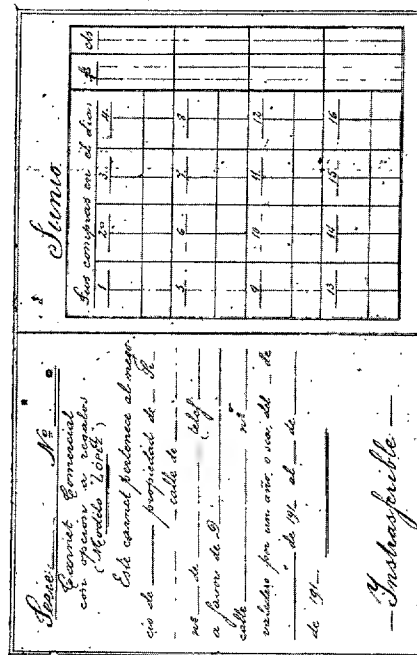 Serie: Nº
Carnet Comercial
con opcion a regalos.
(Modelo López)
Este carnet pertenece al nego-
cio de propiedad de
calle de
nº de telef.
a favor de D
calle nº
valedero por un año, o sea, del de
de 191 al de
de 191
Instrasferible
Junio
Sus compras en el dias
$ cts
1 2 3 4
5 6 7 8
9 10 11 12
13 14 15 16